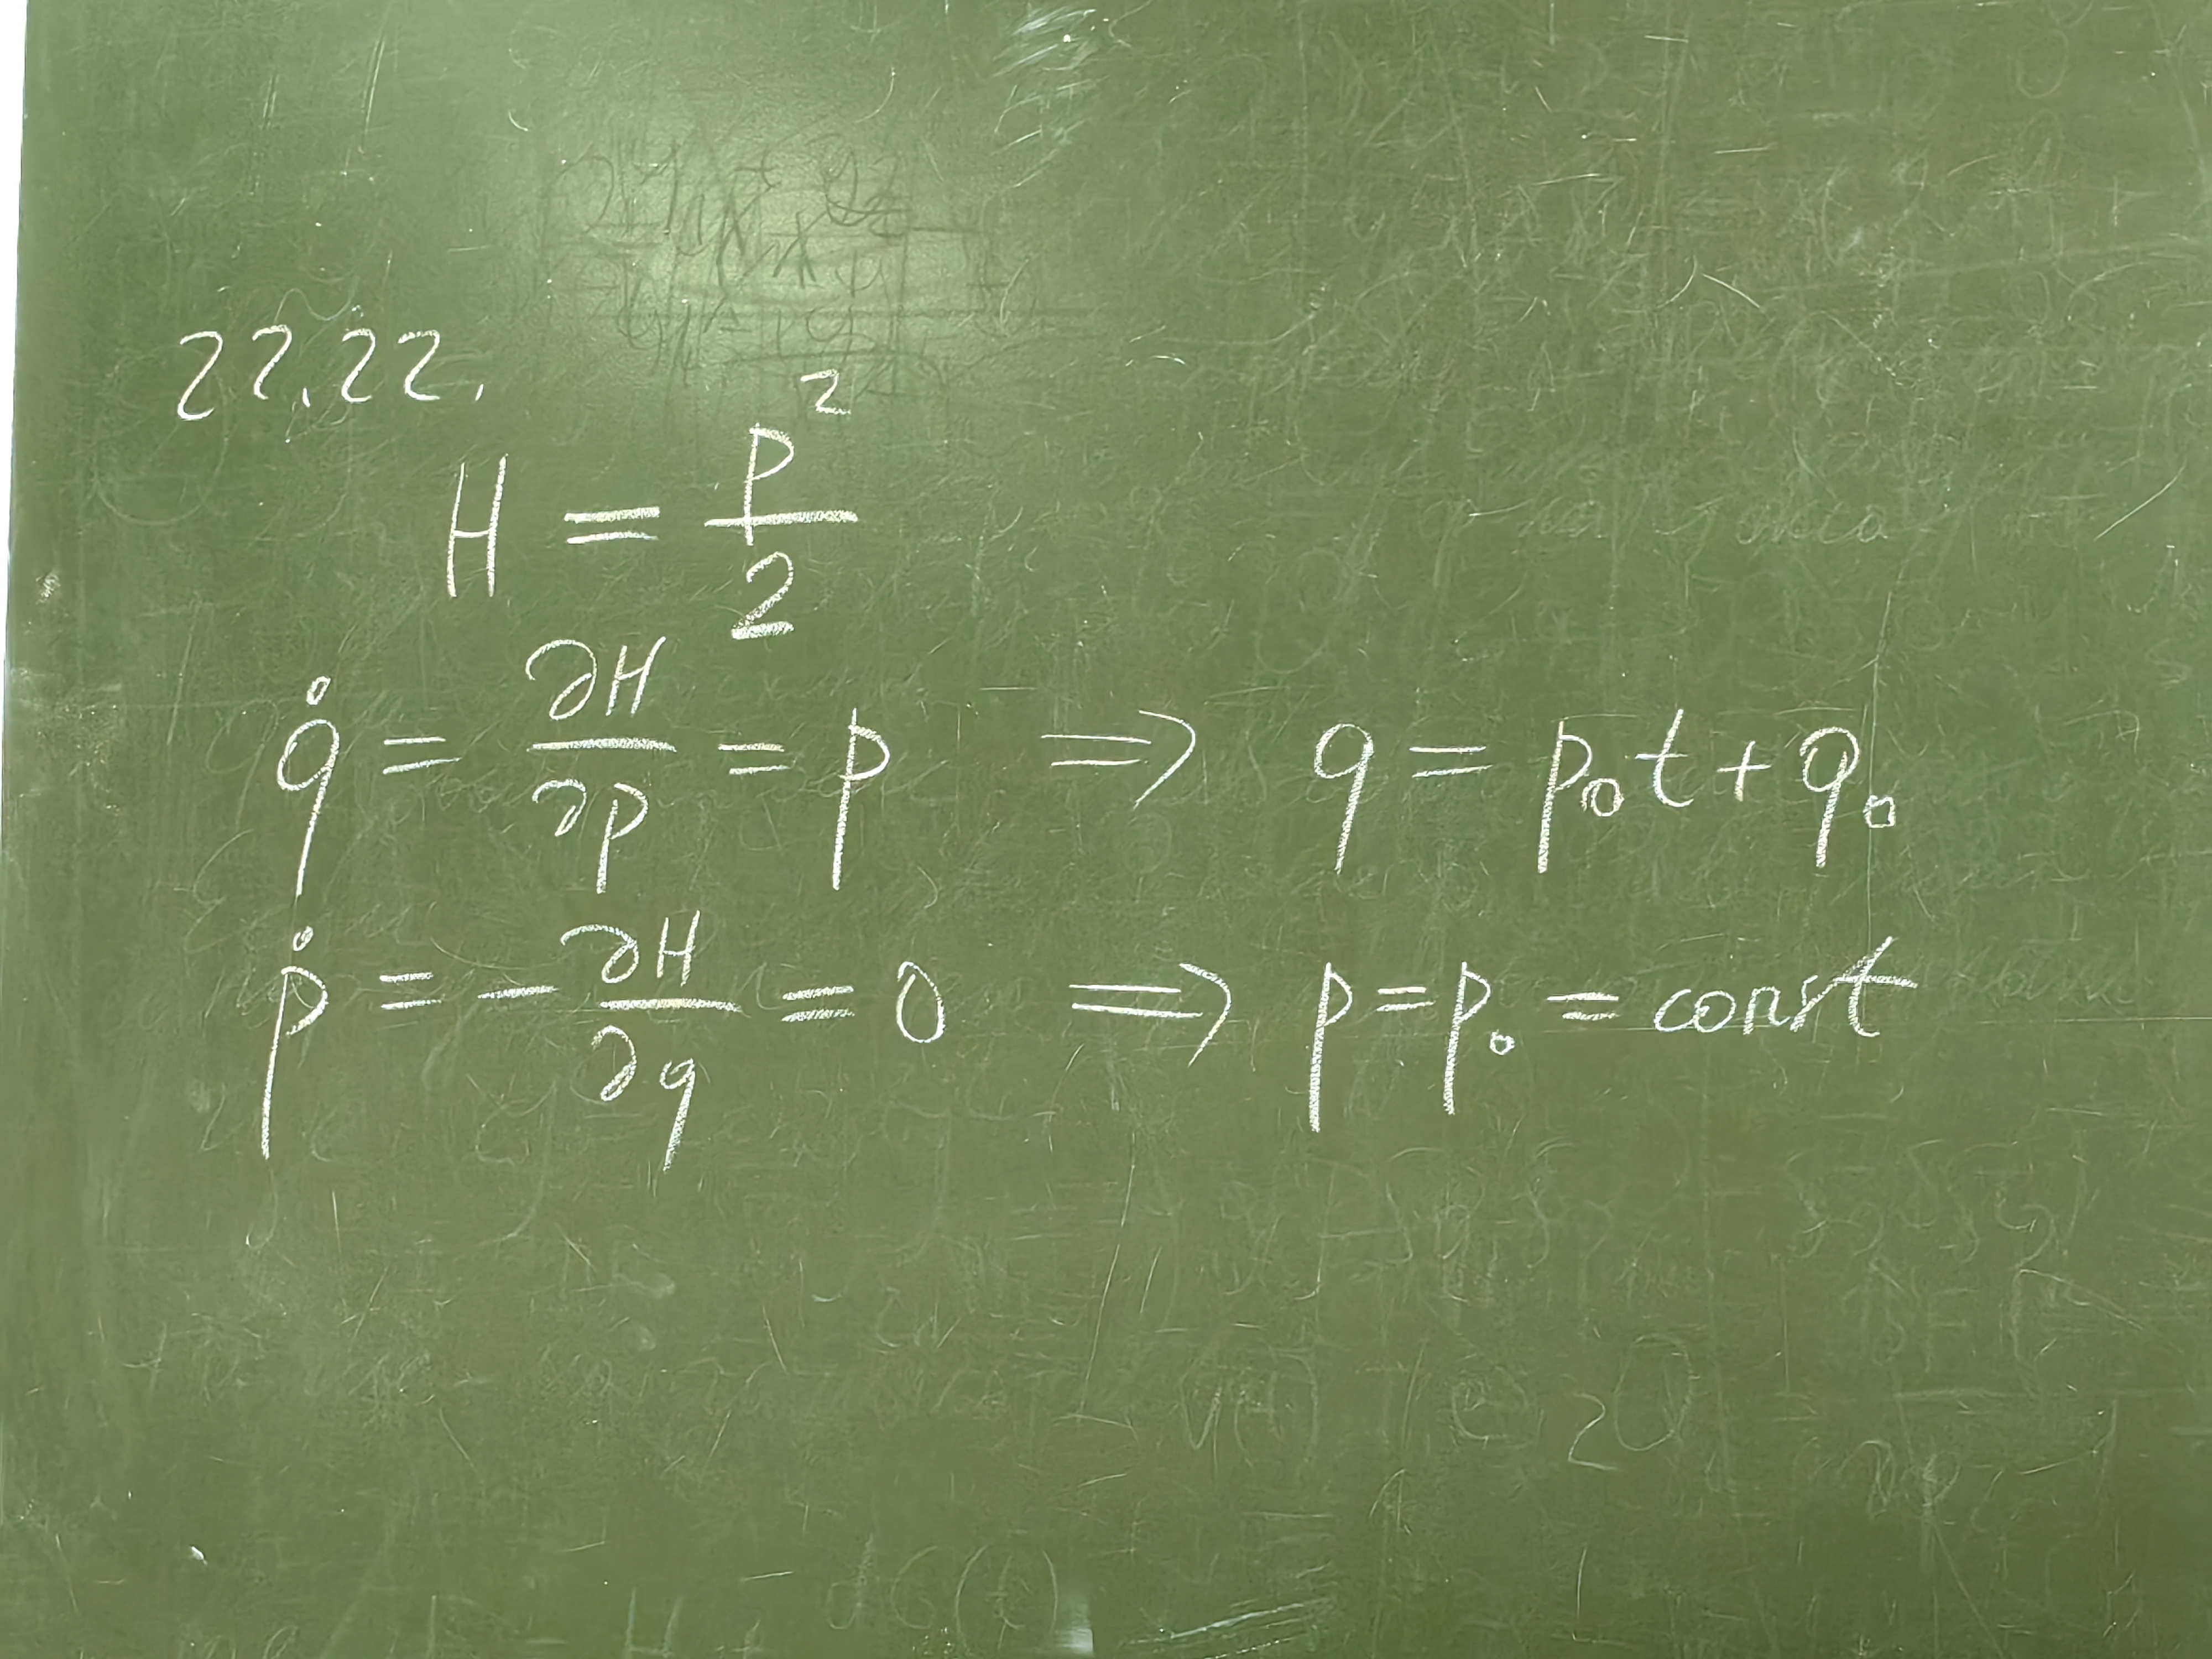 22.22.
H = p²/2
q̇ = ∂H/∂p = p ⇒ q = p₀t + q₀
ṗ = − ∂H/∂q = 0 ⇒ p = p₀ = const